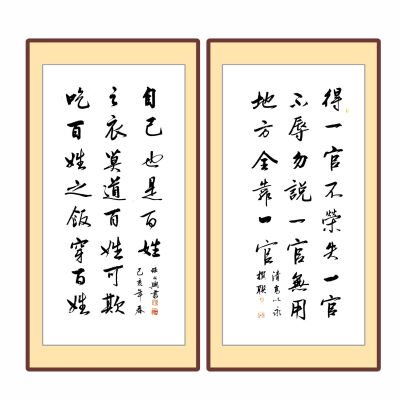 得一官不榮失一官
不辱勿說一官無用
地方全靠一官
清高以永
撰聯
吃百姓之飯穿百姓
之衣莫道百姓可欺
自己也是百姓
己亥年春